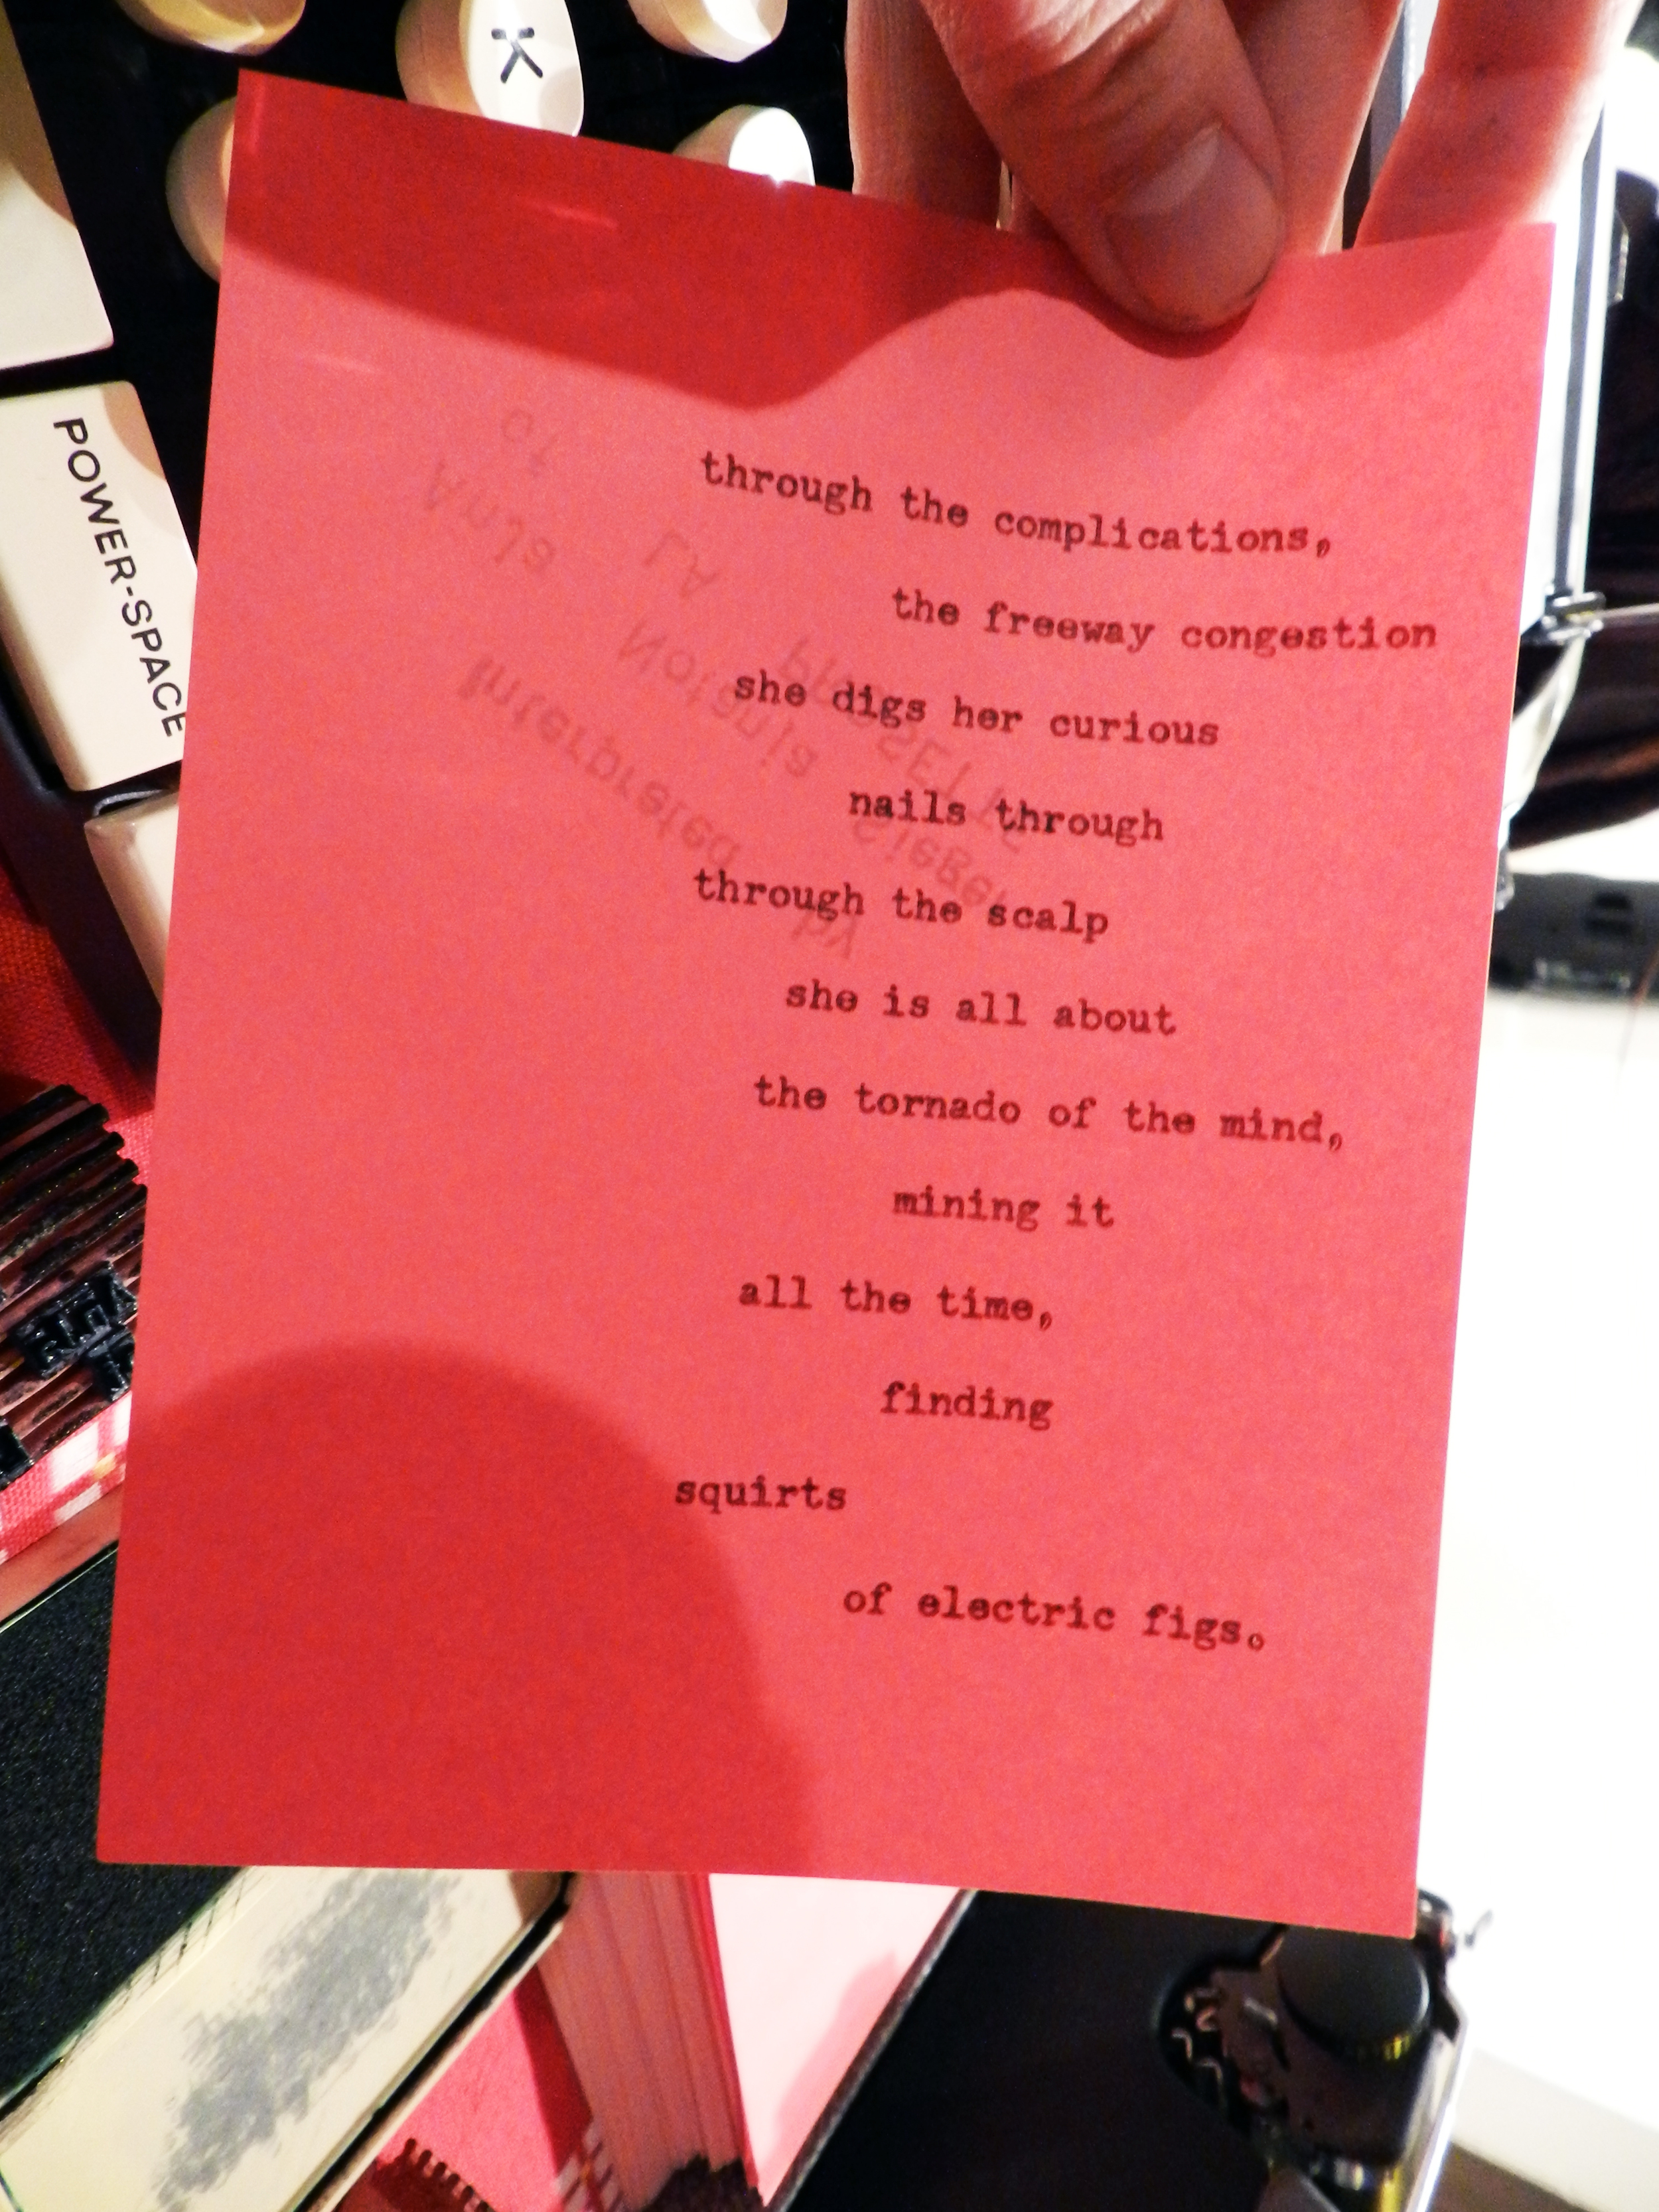 K
POWER-SPACE
through the complications,
the freeway congestion
she digs her curious
nails through
through the scalp
she is all about
the tornado of the mind,
mining it
all the time,
finding
squirts
of electric figs.